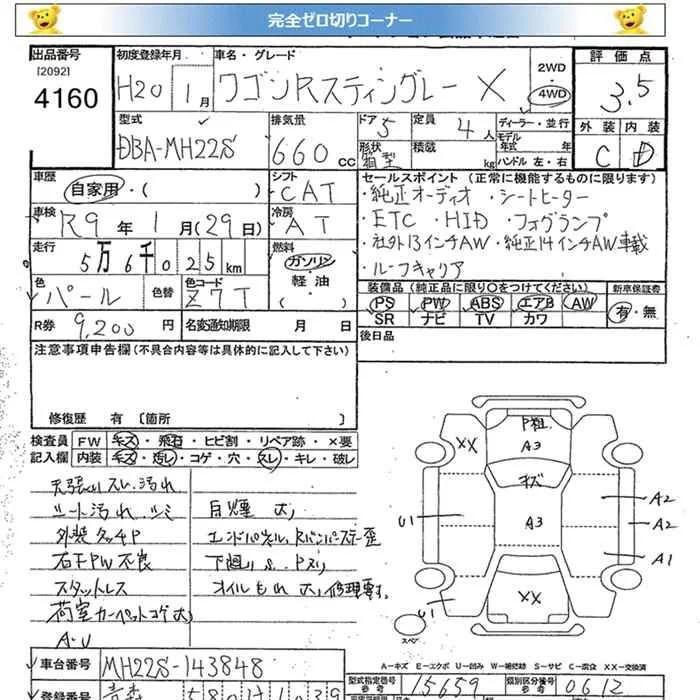 完全ゼロ切りコーナー
出品番号
[2092]
4160
初度登録年月
H20 1月
車名・グレード
ワゴンRスティングレー X
2WD
4WD
評価点
3.5
外装 内装
C D
型式
DBA-MH22S
排気量
660 CC
ドア 5
形状
箱型
定員 4人
積載 kg
ディーラー・並行
モデル
年式 年
ハンドル 左・右
車歴
自家用・( )
シフト
CAT
セールスポイント (正常に機能するものに限ります)
・純正オーディオ ・シートヒーター
・ETC ・HID ・フォグランプ
・社外13インチAW・純正14インチAW車載
・ルーフキャリア
車検
R9年 1月(29日)
冷房
AT
走行
5万6千025km
燃料
ガソリン
軽油
・( )
色
パール
色替
色コード
Z7T
装備品 (純正品に限り○をつけてください)
新車保証書
PS PW ABS エアB AW
SR ナビ TV カワ
有・無
R券 9,200円
名変通知期限 月 日
後日品
注意事項申告欄(不具合内容等は具体的に記入して下さい)
修復歴 有 〔箇所 〕
検査員
記入欄
FW キズ・飛石・ヒビ割・リペア跡・×要
内装 キズ・汚れ・コゲ・穴・スレ・キレ・破レ
天張りスレ、汚れ
シート汚れ、シミ
外装タッチP
右F PW不良
スタットレス
荷室カーペットコゲ大
A・U
下廻りS・Pスリ
オイルもれ 大 修理要す
P粗
A3
XX
キズ
A3
U1
A2
A2
A1
XX
U1
スペア
A-キズ E-エクボ U-凹み W-補修跡 S-サビ C-腐食 XX-交換済
車台番号 MH22S-143848
型式指定番号
参考
15659
類別区分番号
参考
0612
登録番号 青森 580